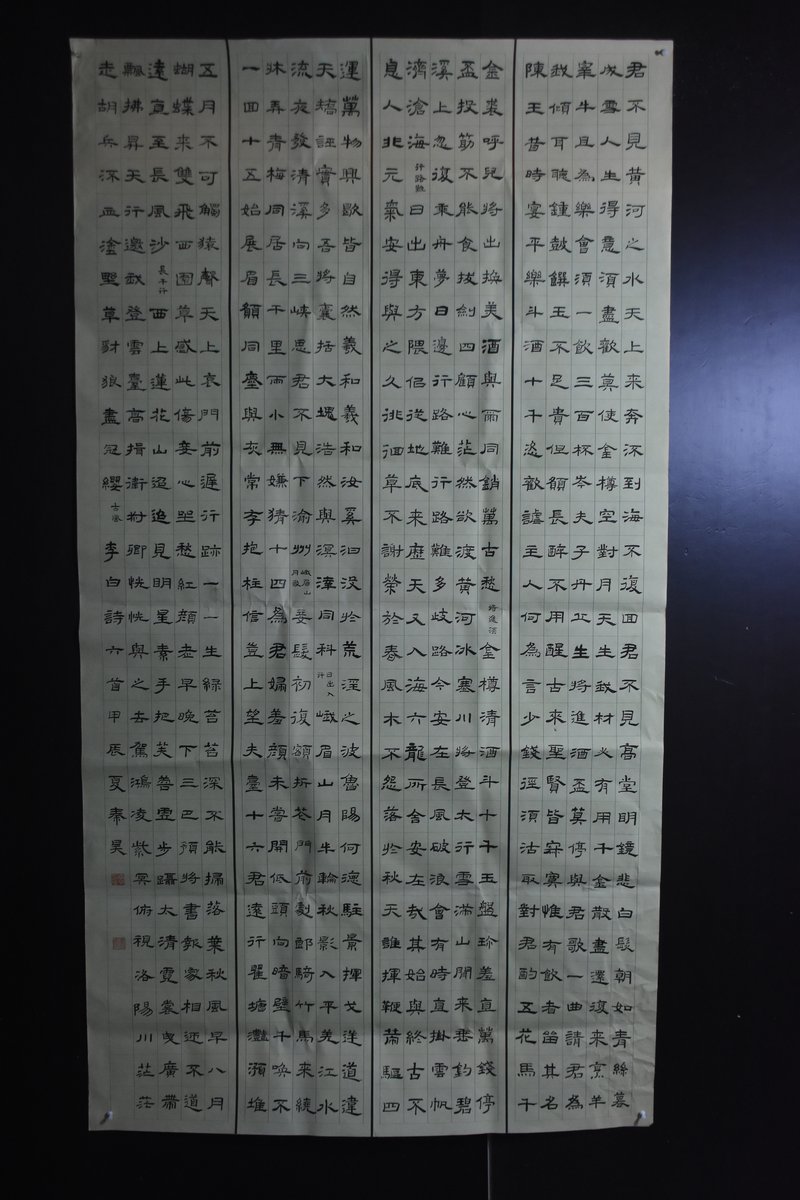 君不見黃河之水天上來奔流到海不復回君不見高堂明鏡悲白髮朝如青絲暮
成雪人生得意須盡歡莫使金樽空對月天生我材必有用千金散盡還復来烹羊
宰牛且為樂會須一飲三百杯岑夫子丹丘生將進酒盃莫停與君歌一曲請君為
我傾耳聽鐘鼓饌玉不足貴但願長醉不用醒古来聖賢皆寂寞惟有飲者留其名
陳王昔時宴平樂斗酒十千恣歡謔主人何為言少錢徑須沽取對君酌五花馬千
金裘呼兒將出換美酒與爾同銷萬古愁 將進酒 金樽清酒斗十千玉盤珍羞直萬錢停
盃投筯不能食拔劍四顧心茫然欲渡黃河冰塞川將登太行雪滿山閒来垂釣碧
溪上忽復乘舟夢日邊行路難行路難多歧路今安在長風破浪會有時直掛雲帆
濟滄海 行路難 日出東方隈侣從地底来歷天又入海六龍所舍安在哉其始與終古不
息人非元氣安得與之久徘徊草不謝榮於春風木不怨落於秋天誰揮鞭策驅四
運萬物興歇皆自然羲和羲和汝奚汩没於荒淫之波魯陽何德駐景揮戈逆道違
天矯誣實多吾將囊括大塊浩然與溟涬同科 日出入行 峨眉山月半輪秋影入平羌江水
流夜發清溪向三峽思君不見下渝州 峨眉山月歌 妾髮初復額折花門前劇郎騎竹馬来繞
牀弄青梅同居長干里兩小無嫌猜十四為君婦羞顏未嘗開低頭向暗壁千喚不
一回十五始展眉願同塵與灰常存抱柱信豈上望夫臺十六君遠行瞿塘灩澦堆
五月不可觸猿聲天上哀門前遲行跡一一生綠苔苔深不能掃落葉秋風早八月
蝴蝶来雙飛西園草感此傷妾心坐愁紅顏老早晚下三巴預將書報家相迎不道
遠直至長風沙 長干行 西上蓮花山迢迢見明星素手把芙蓉虛步躡太清霓裳曳廣帶
飄拂昇天行邀我登雲臺高揖衛叔卿恍恍與之去駕鴻凌紫冥俯視洛陽川茫茫
走胡兵流血塗野草豺狼盡冠纓 古風 李白詩六首甲辰夏秦昊